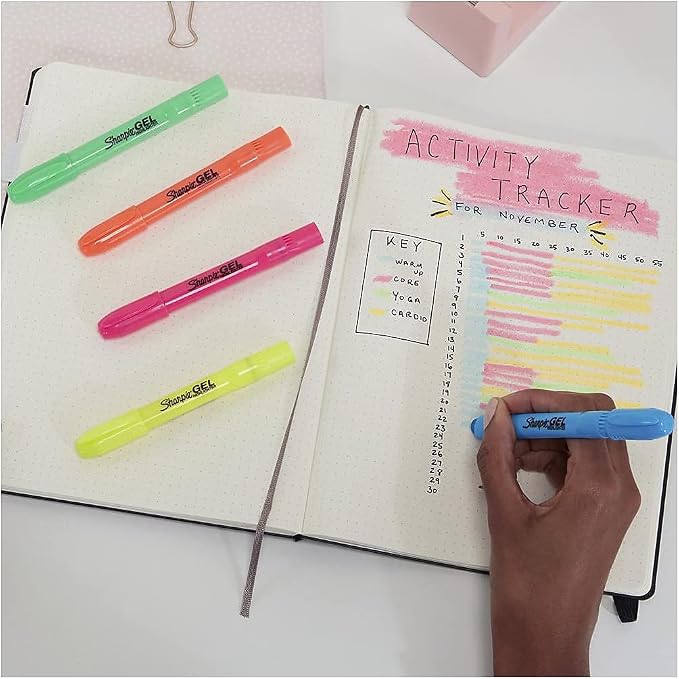 Sharpie GEL
HIGHLIGHTER
Sharpie GEL
HIGHLIGHTER
Sharpie GEL
HIGHLIGHTER
Sharpie GEL
HIGHLIGHTER
ACTIVITY
TRACKER
FOR NOVEMBER
KEY
WARM
UP
CORE
YOGA
CARDIO
5 10 15 20 25 30 35 40 45 50 55
1
2
3
4
5
6
7
8
9
10
11
12
13
14
15
16
17
18
19
20
21
22
23
24
25
26
27
28
29
30
Sharpie GEL